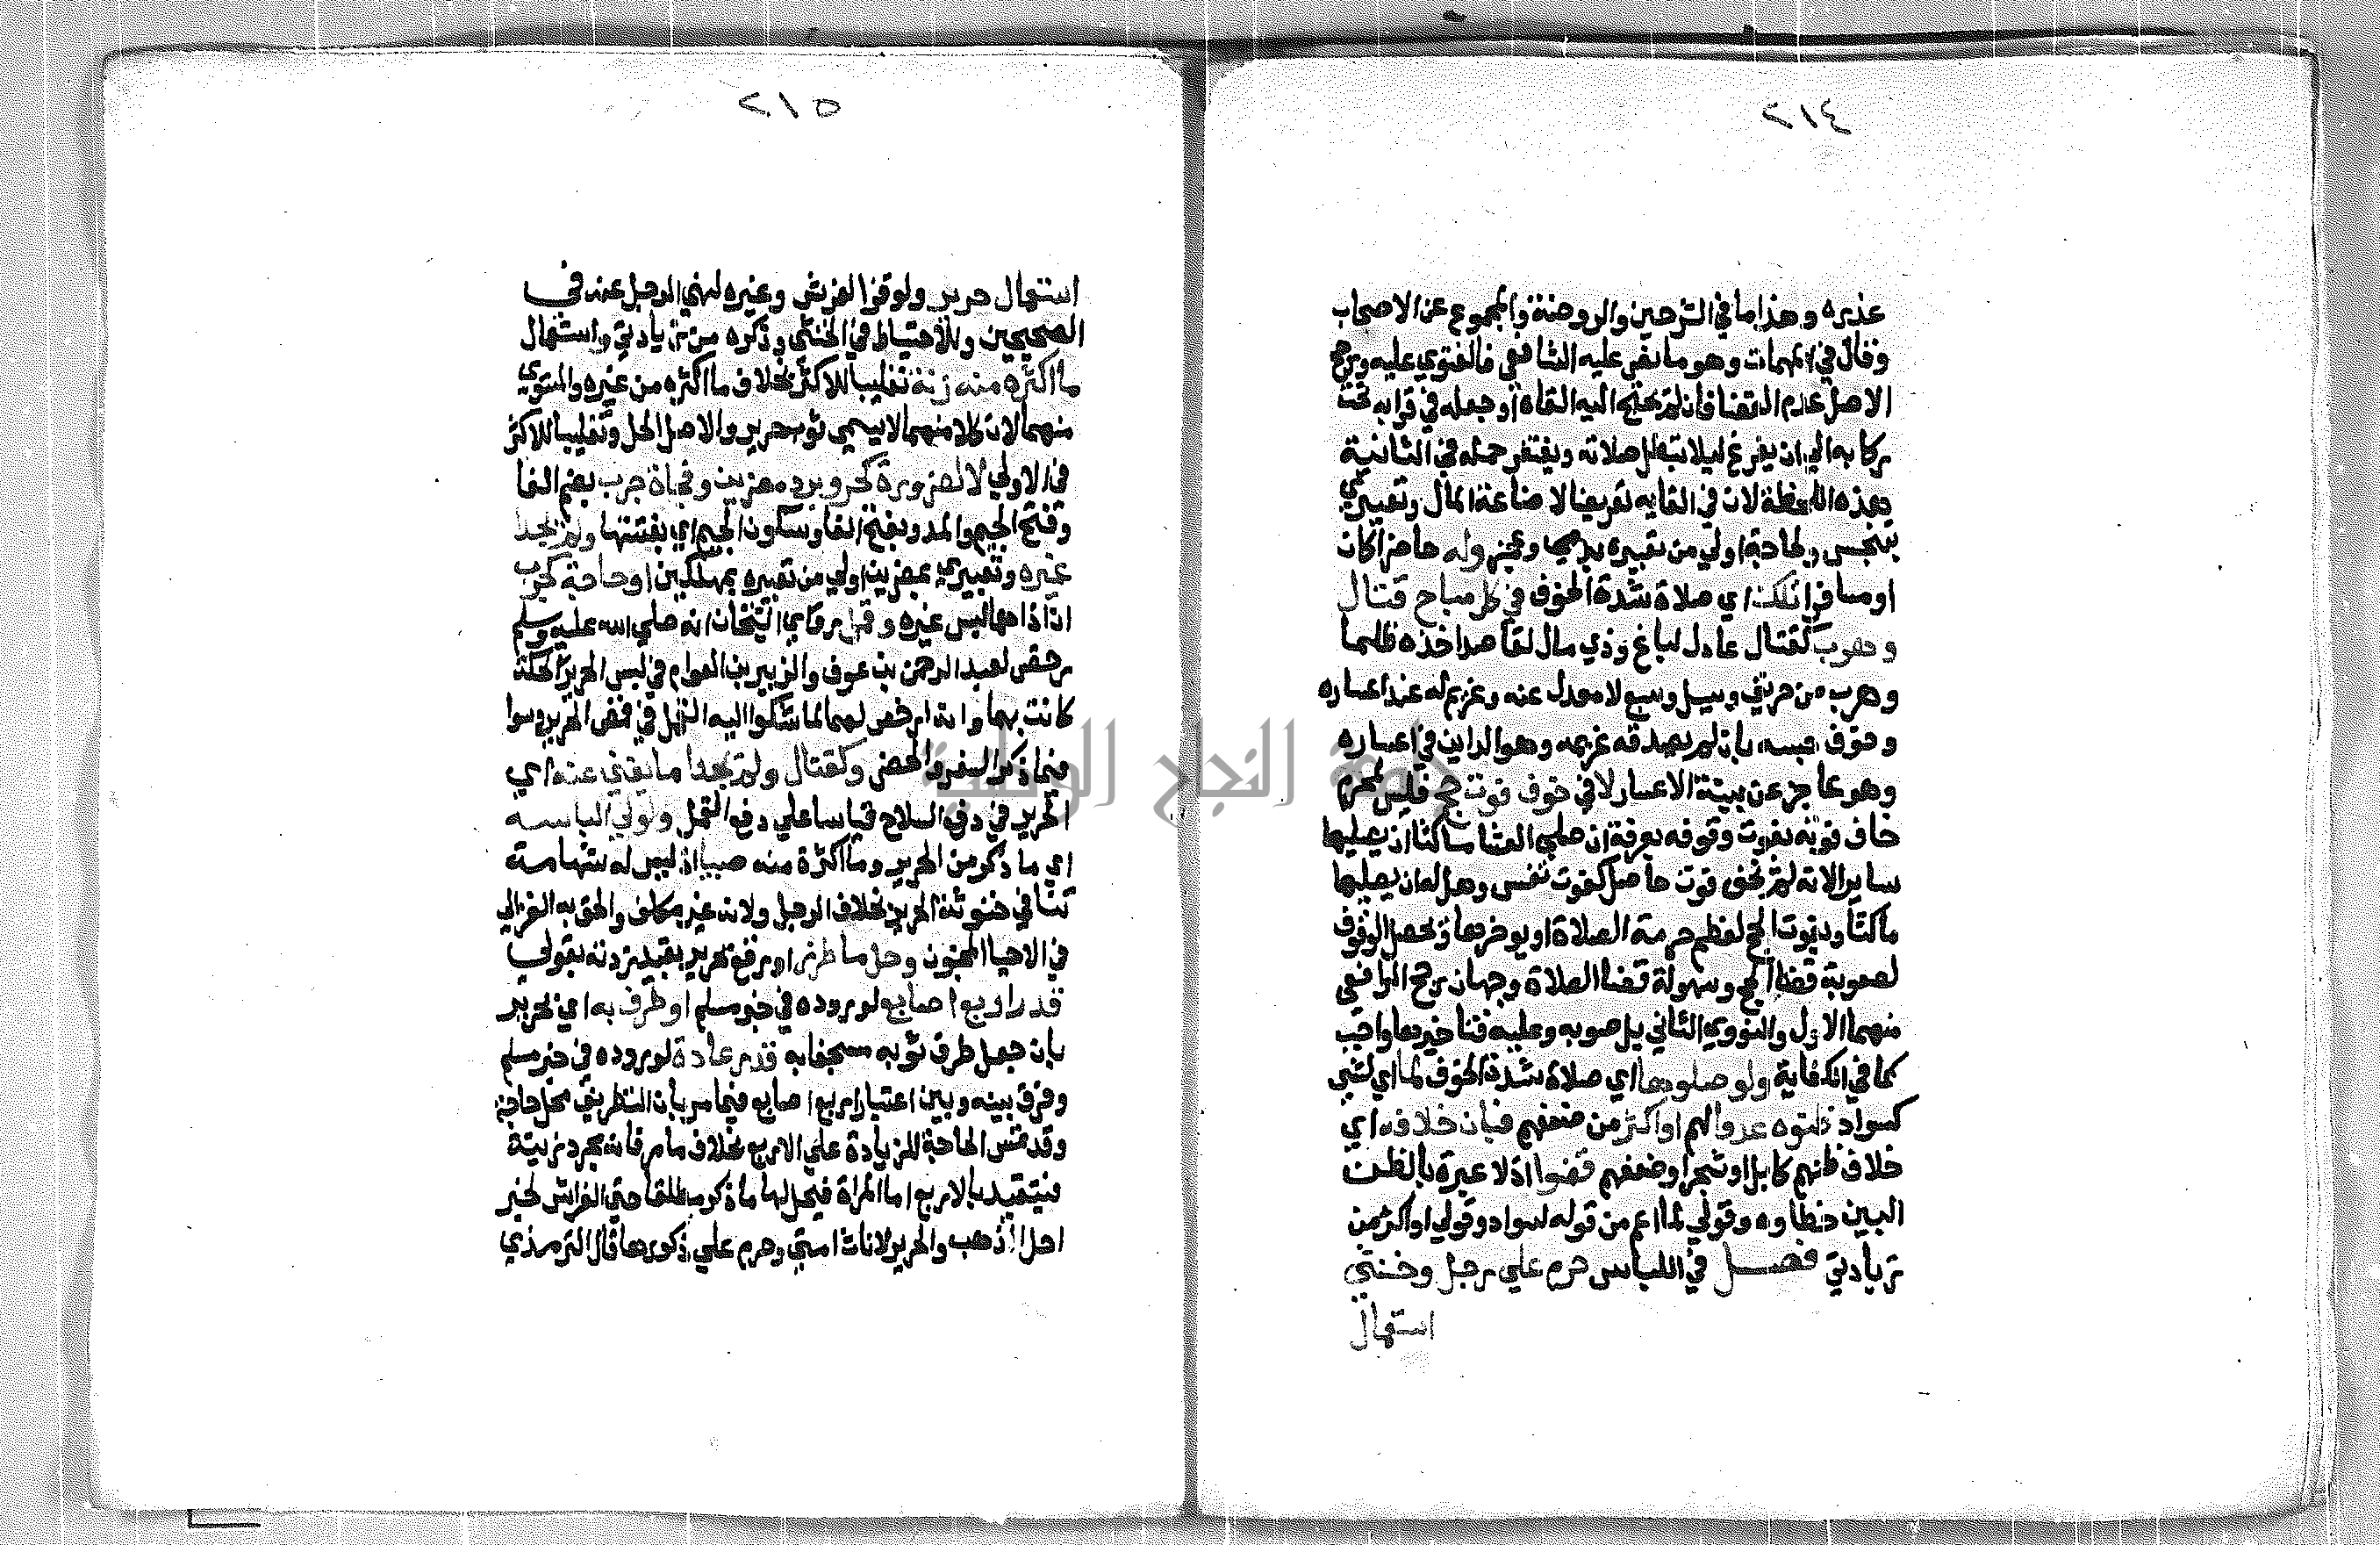 ٢١٤
عذره وهذا ما في الشرحين والروضة والمجموع عن الاصحاب
وقال في المهمات وهو ما نص عليه الشافعي فالفتوي عليه ورجح
الاصل عدم القضا فان لم يحتج اليه القاه او جعله في قرابه تحت
ركابه الي ان يفرغ ليلا تبطل صلاته ويغتفر حمله في الثانية
هذه اللحظة لان في القايه تعريضا لاضاعة المال وتعبيري
بتنجس ولحاجة اولي من تعبيره بدمي وعجز وله حاضرا كان
او مسافرا تلك اي صلاة شدة الخوف في كل مباح قتال
وهرب كقتال عادل لباغ وذي مال لقاصد اخذه ظلما
وهرب من حريق وسيل وسبع لا معدل عنه وغريم له عند اعساره
وخوف حبسه بان لم يصدقه غريمه وهو الداين في اعساره
وهو عاجز عن بينة الاعسار لا في خوف فوت حج فليس لمحرم
خاف فوته بفوت وقوفه بعرفة ان صلي العشا ماكثا ان يصليها
سايرا لانه لم يخف فوت حاصل كفوت نفس وهل له ان يصليها
ماكثا ويفوت الحج لعظم حرمة الصلاة او يوخرها ويحصل الوقوف
لصعوبة قضا الحج وسهولة قضا الصلاة وجهان رجح الرافعي
منهما الاول والنووي الثاني بل صوبه وعليه فتاخيرها واجب
كما في الكفاية ولو صلوها اي صلاة شدة الخوف لما اي لشي
كسواد ظنوه عدوا لهم او اكثر من ضعفهم فبان خلافه اي
خلاف ظنهم كابل او شجر او ضعفهم قضوا اذ لا عبرة بالظن
البين خطاوه وقولي لما اعم من قوله لسواد وقولي او اكثر من
زيادتي فصل في اللباس حرم علي رجل وخنثي
استعمال
٢١٥
استعمال حرير ولو قزا لفرش وغيره لنهي الرجل عنه في
الصحيحين وللاحتياط في الخنثي وذكره من زيادتي واستعمال
ما اكثره منه زنة تغليبا للاكثر بخلاف ما اكثره من غيره والمستوي
منهما لان كلا منهما لا يسمي ثوب حرير والاصل الحل وتغليبا للاكثر
في الاولي لا لضرورة كحر وبرد مضرين وفجاة حرب بضم الفا
وفتح الجيم والمد وبفتح الفا وسكون الجيم اي بغتتها ولم يجد
غيره وتعبيري بمضرين اولي من تعبيره بمهلكين او حاجة كجرب
ان اذاهما لبس غيره وقمل روي الشيخان انه صلي الله عليه وسلم
رخص لعبد الرحمن بن عوف والزبير بن العوام في لبس الحرير لحكة
كانت بهما وانه ارخص لهما لما شكوا اليه القمل في قمص الحرير وسوا
فيما ذكر السفر والحضر وكقتال ولم يجدا ما يغني عنه اي
الحرير في دفع السلاح قياسا علي دفع القمل ولولي الباسه
اي ما ذكر من الحرير وما اكثره منه صبيا اذ ليس له شهامة
تنافي خنوثة الحرير بخلاف الرجل ولانه غير مكلف والحق به الغزالي
في الاحيا المجنون وحل ما طرز او رقع بحرير بقيد زدته بقولي
قدر اربع اصابع لوروده في خبر مسلم او طرف به اي بحرير
بان جعل طرف ثوبه مسجفا به قدر عادة لوروده في خبر مسلم
وفرق بينه وبين اعتبار اربع اصابع فيما مر بان التطريف محل حاجة
وقد تمس الحاجة للزيادة علي الاربع بخلاف ما مر فانه مجرد زينة
فيتقيد بالاربع اما المراة فيحل لها ما ذكر مطلقا حتي الفراش لخبر
احل الذهب والحرير لاناث امتي وحرم علي ذكورها قال الترمذي
جامعة النجاح الوطنية